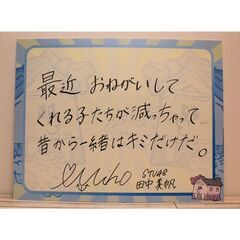 最近 おねがいして
くれる子たちが減っちゃって…
昔から一緒はキミだけだ。
Miho
STU48
田中美帆